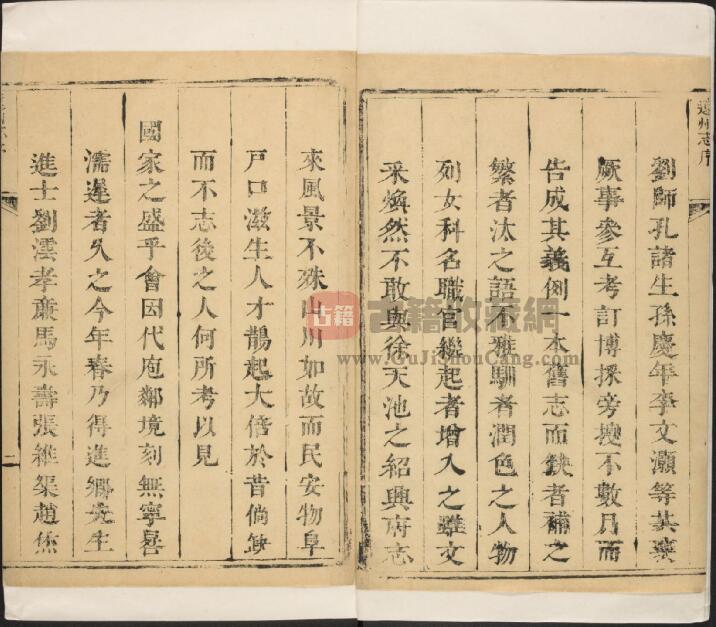 遼州志序
劉師孔諸生孫慶年李文灝等共襄
厥事參互考訂博採旁搜不數月而
告成其義例一本舊志而缺者補之
繁者汰之語不雅馴者潤色之人物
列女科名職官繼起者增入之雖文
采煥然不敢與徐天池之紹興府志
來風景不殊山川如故而民安物阜
戶口滋生人才鵲起大倍於昔倘缺
而不志後之人何所考以見
國家之盛乎會因代庖鄰境刻無寧晷
濡遲者久之今年春乃得進鄉先生
進士劉澐孝廉馬永壽張維渠趙焦
二
古籍 古籍收藏網
www.GuJiShouCang.com